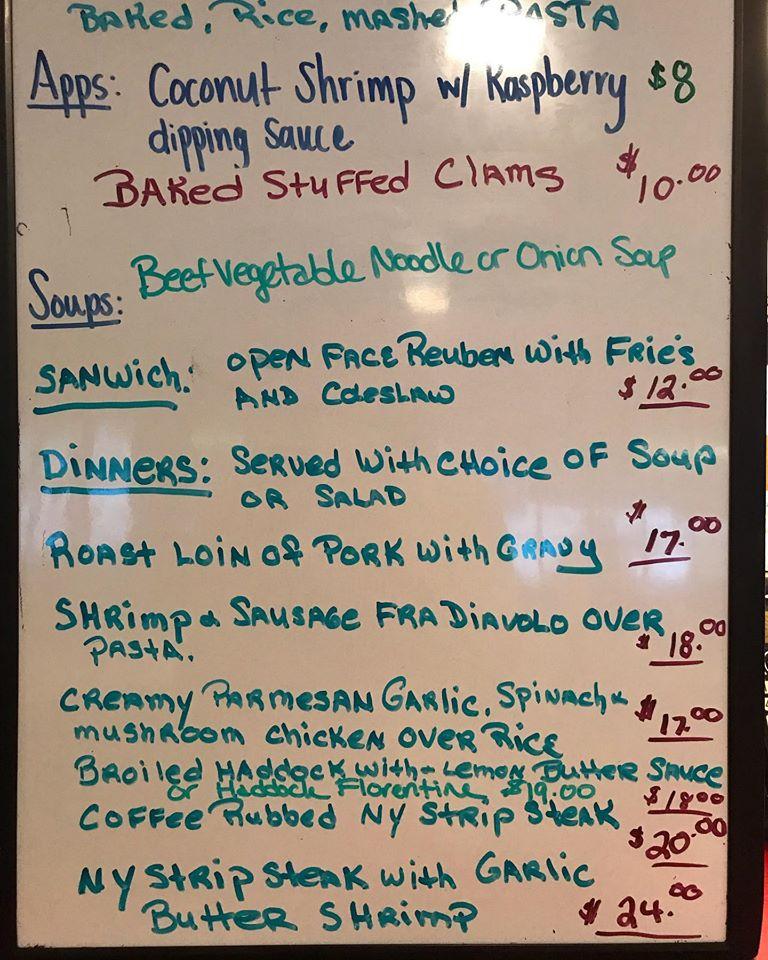 Baked, Rice, mashed PASTA
Apps: Coconut Shrimp w/ Raspberry $8
dipping Sauce
BAKed STuFFed ClAMS $10.00
Soups: Beef Vegetable Noodle or Onion Soup
SANWich: OPEN FACE Reuben With Frie's
AND ColeSLAW $12.00
DiNNERS: Served With CHOICE OF Soup
OR SALAD
ROAST LOIN OF PORK With GRAVY $17.00
SHRimp & SAUSAGE FRA DiAVOLO OVER
PASTA. $18.00
CREAMY PARMESAN GARLIC, SPINACH & $17.00
MUSHROOM CHicKEN OVER Rice
BROILED HADDOCK With LEMON BUTTER SAUCE
or Haddock Florentine, $19.00 $18.00
COFFEE Rubbed NY STRIP STEAK $20.00
NY STRIP STEAK With GARLIC
BUTTER SHRIMP $24.00